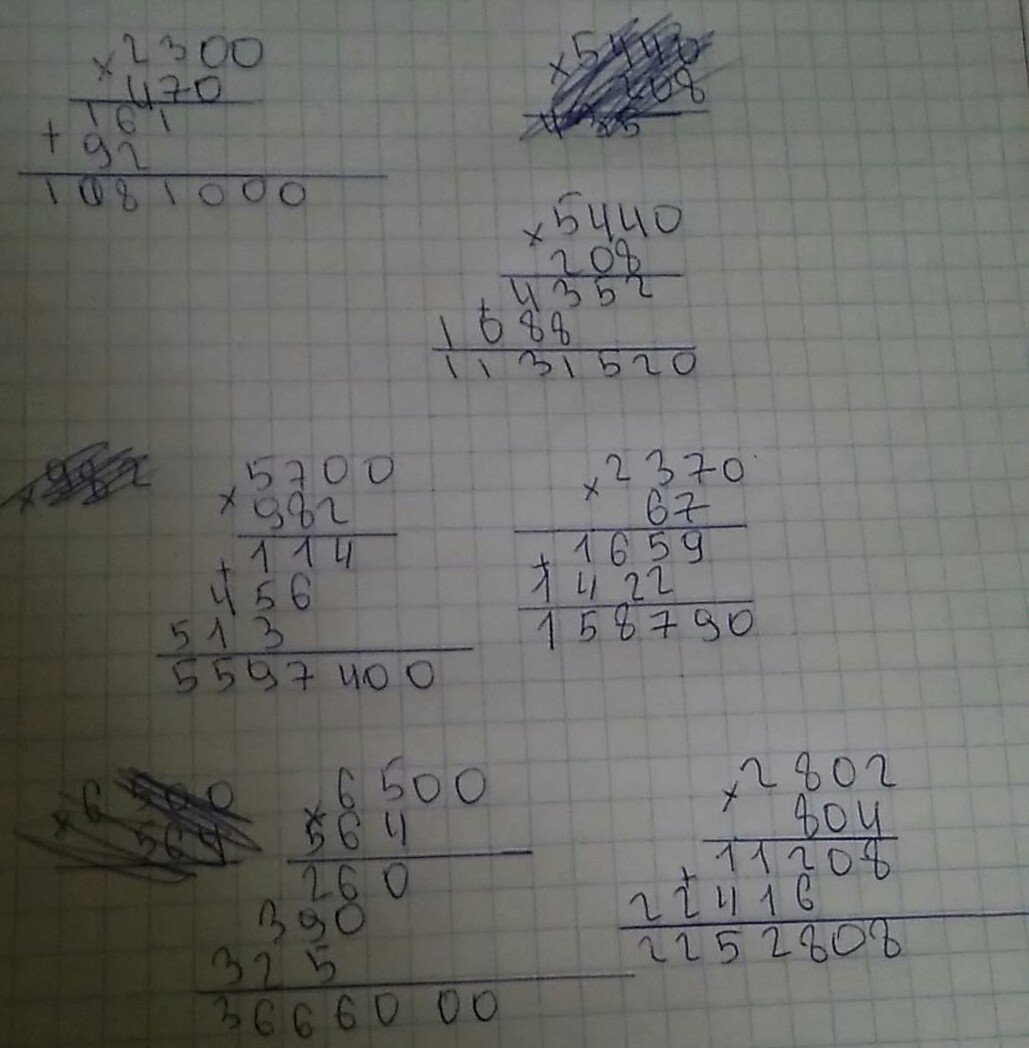 ×2300
470
161
+ 92
1081000
×5440
208
×5440
208
+ 4352
1088
1131520
×982
×5700
982
+ 114
456
513
5597400
×2370
67
+ 1659
1422
158790
×6500
564
×6500
564
260
390
325
3666000
×2802
804
+ 11208
22416
2252808